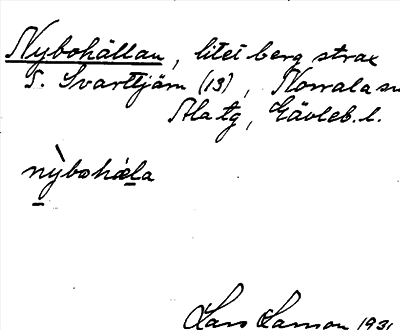 Nybohällan, litet berg strax
S. Svarttjärn (13), Norrala sn
Ala tg, Gävleb. l.
nỳbohæla
Lars Larsson 1931